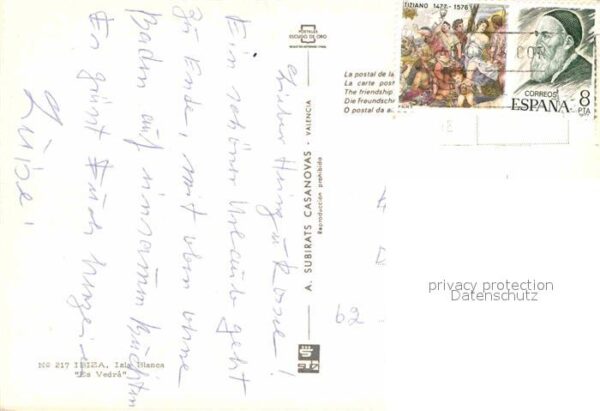 Ein schöner Urlaub geht
zu Ende, mit oben ohne
Baden auf
Es grüsst Euch
Luise!
Nº 217 IBIZA, Isla Blanca
"Es Vedrá"
POSTALES
ESCUDO DE ORO
A. SUBIRATS CASANOVAS - VALENCIA
Reproducción prohibida
La postal de la
La carte post
The friendship
Die freundsch
O postal da a
TIZIANO 1477 - 1576
CORREOS
ESPAÑA
8
PTA
62
privacy protection
Datenschutz